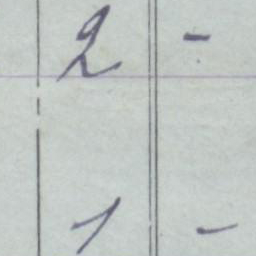 2 -
1 -